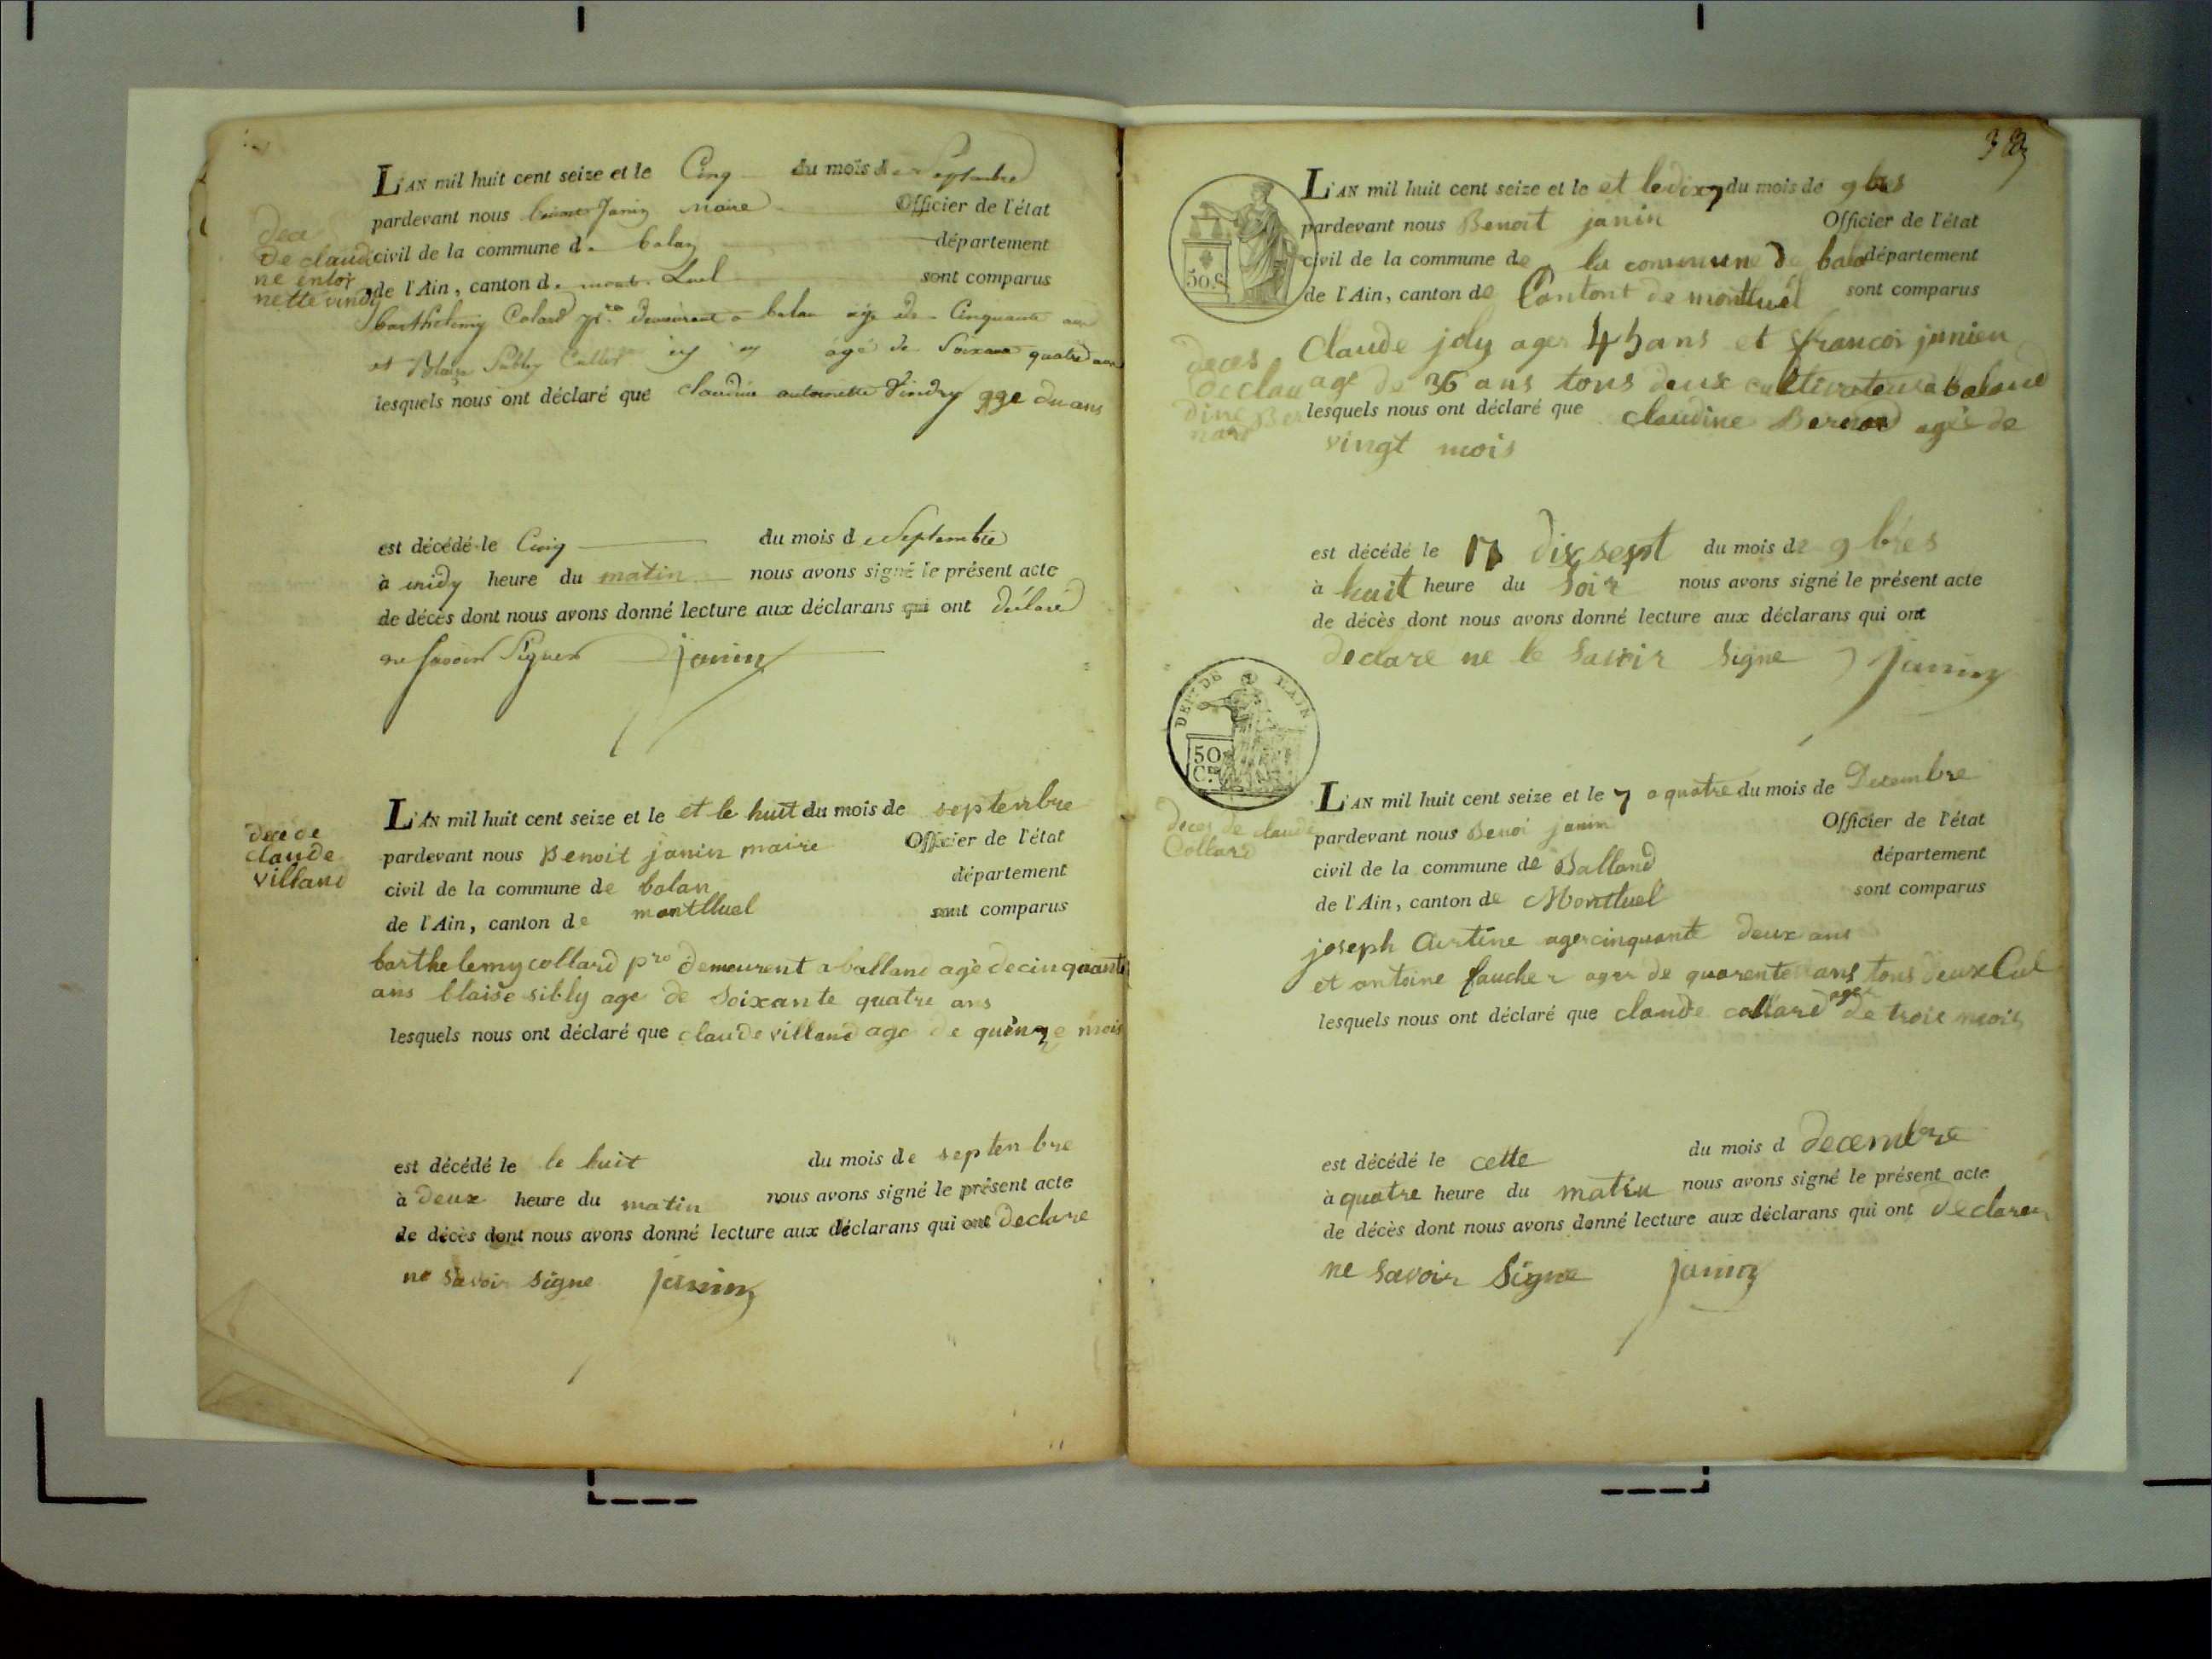 L'AN mil huit cent seize et le Cinq du mois de Septembre
pardevant nous benoit Janin maire Officier de l'état
civil de la commune de balan département
de l'Ain, canton de mont Luel sont comparus
barthelemy Colard pre demeurant a balan agé de Cinquante ans
et Blaise Sibly Culter agé de Soixante quatre ans
lesquels nous ont déclaré que claudine antoinette Vindry age du ans
dece
de claudi
ne entoi
nette vindry
est décédé le Cinq du mois de Septembre
à midy heure du matin nous avons signé le présent acte
de décès dont nous avons donné lecture aux déclarans qui ont déclaré
ne savoir Signer janin
L'AN mil huit cent seize et le et le huit du mois de septenbre
pardevant nous Benoit janin maire Officier de l'état
civil de la commune de balan département
de l'Ain, canton de montlluel sont comparus
barthelemy collard pro demeurent a balland agé de cinquante
ans blaise sibly age de soixante quatre ans
lesquels nous ont déclaré que claude villand age de quinze mois
dece de
claude
villand
est décédé le le huit du mois de septenbre
à deux heure du matin nous avons signé le présent acte
de décès dont nous avons donné lecture aux déclarans qui ont declare
ne savoir signe janin
38
50 C.
L'AN mil huit cent seize et le et le dix 7 du mois de 9 bres
pardevant nous Benoit janin Officier de l'état
civil de la commune de la commune de bala département
de l'Ain, canton de Cantont de montluel sont comparus
Claude joly ager 45 ans et francoi janien
age de 36 ans tous deux cultivateur a baland
lesquels nous ont déclaré que claudine Bernard agée de
vingt mois
deces
de clau
dine Ber
nard
est décédé le 17 dix sept du mois de 9 bres
à huit heure du soir nous avons signé le présent acte
de décès dont nous avons donné lecture aux déclarans qui ont
declare ne le savoir signe Janin
DEPt DE L'AIN
50 Cmes
L'AN mil huit cent seize et le 7 a quatre du mois de Decembre
pardevant nous Benoi janin Officier de l'état
civil de la commune de Balland département
de l'Ain, canton de Montluel sont comparus
joseph ager cinquante deux ans
et antoine faucher ager de quarente ans tous deux Cul
lesquels nous ont déclaré que claude collard age de trois mois
deces de claude
Collard
est décédé le cette du mois d decembre
à quatre heure du matin nous avons signé le présent acte
de décès dont nous avons donné lecture aux déclarans qui ont declarer
ne savoir signe janin